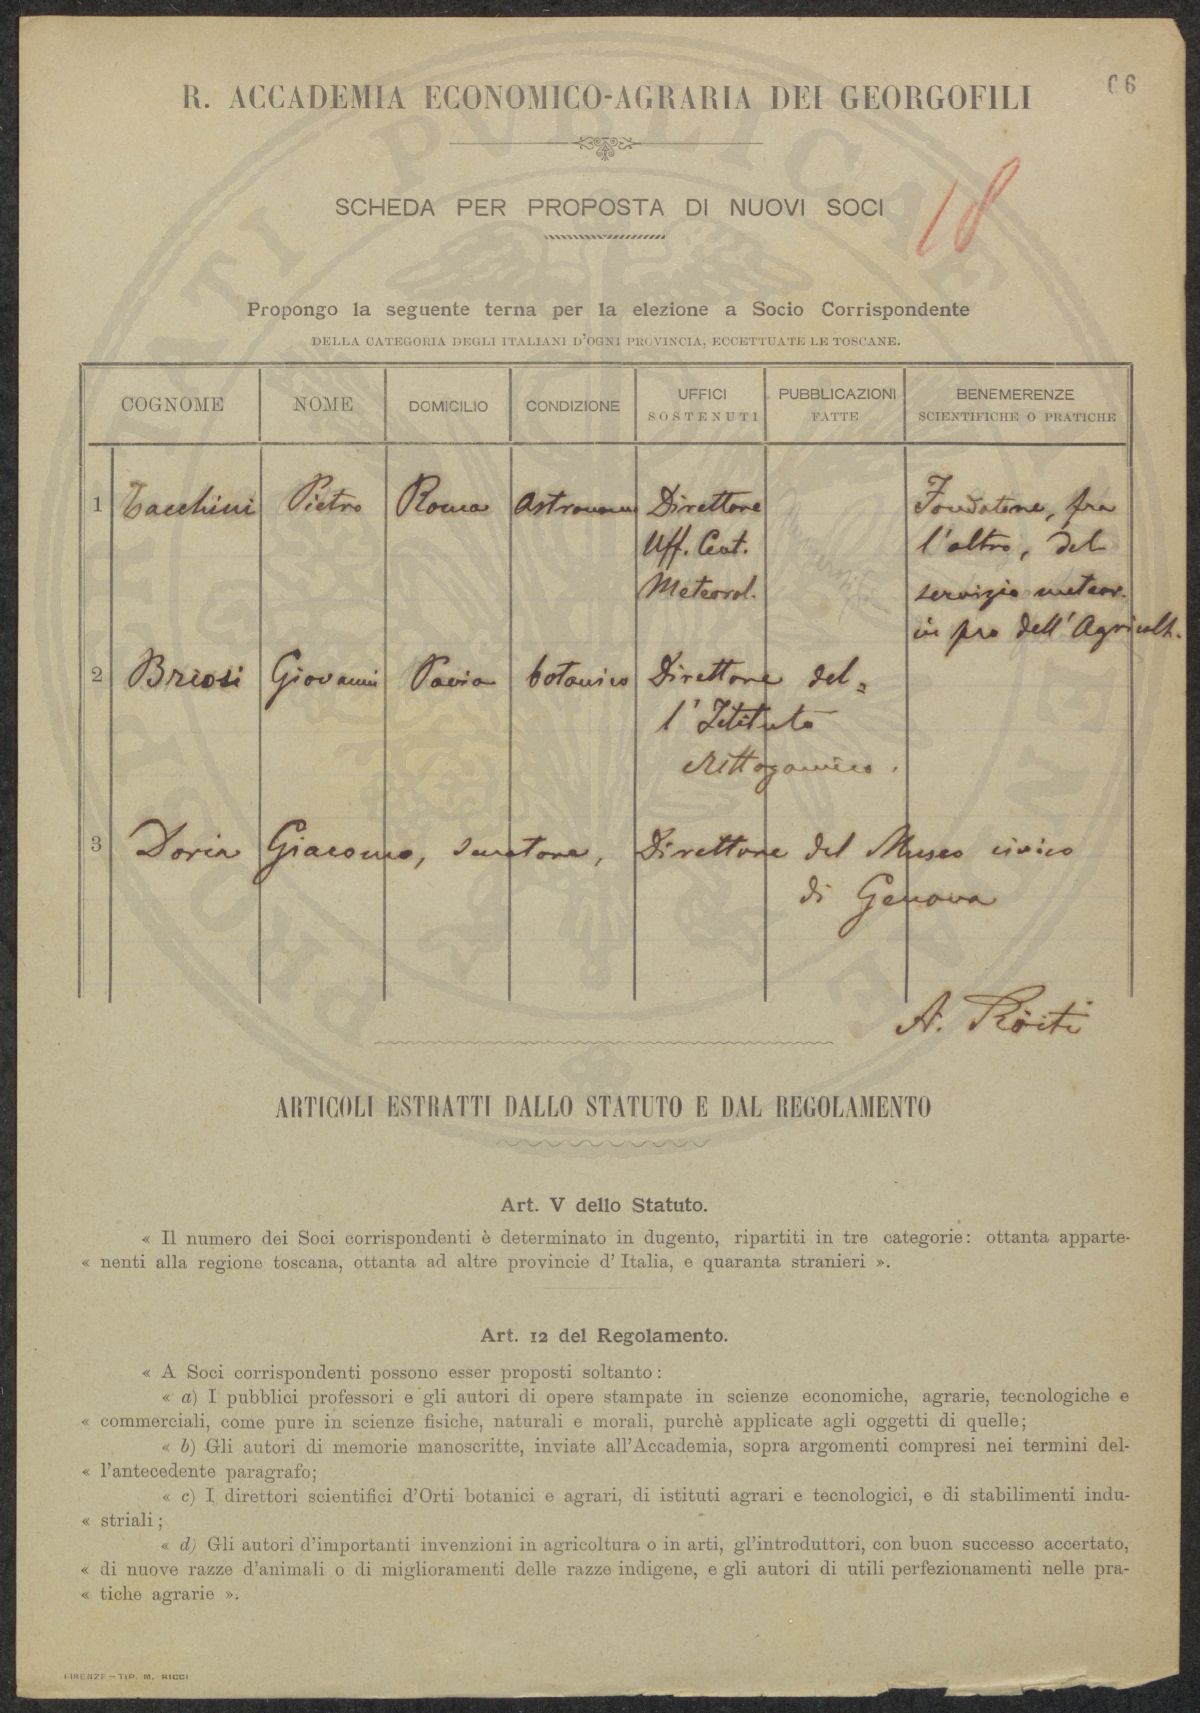 66
R. ACCADEMIA ECONOMICO-AGRARIA DEI GEORGOFILI
SCHEDA PER PROPOSTA DI NUOVI SOCI
18
Propongo la seguente terna per la elezione a Socio Corrispondente
DELLA CATEGORIA DEGLI ITALIANI D'OGNI PROVINCIA, ECCETTUATE LE TOSCANE.
COGNOME NOME DOMICILIO CONDIZIONE UFFICI SOSTENUTI PUBBLICAZIONI FATTE BENEMERENZE SCIENTIFICHE O PRATICHE
1 Tacchini Pietro Roma Astronomo Direttore Fondatore, fra
Uff. Cent. l'altro, del
Meteorol. servizio meteor.
in pro dell'Agricolt.
2 Briosi Giovanni Pavia botanico Direttore del=
l'Istituto
Crittogamico.
3 Doria Giacomo, senatore, Direttore del Museo civico
di Genova
A. Ròiti
ARTICOLI ESTRATTI DALLO STATUTO E DAL REGOLAMENTO
Art. V dello Statuto.
« Il numero dei Soci corrispondenti è determinato in dugento, ripartiti in tre categorie: ottanta apparte-
« nenti alla regione toscana, ottanta ad altre provincie d'Italia, e quaranta stranieri ».
Art. 12 del Regolamento.
« A Soci corrispondenti possono esser proposti soltanto:
« a) I pubblici professori e gli autori di opere stampate in scienze economiche, agrarie, tecnologiche e
« commerciali, come pure in scienze fisiche, naturali e morali, purchè applicate agli oggetti di quelle;
« b) Gli autori di memorie manoscritte, inviate all'Accademia, sopra argomenti compresi nei termini del-
« l'antecedente paragrafo;
« c) I direttori scientifici d'Orti botanici e agrari, di istituti agrari e tecnologici, e di stabilimenti indu-
« striali;
« d) Gli autori d'importanti invenzioni in agricoltura o in arti, gl'introduttori, con buon successo accertato,
« di nuove razze d'animali o di miglioramenti delle razze indigene, e gli autori di utili perfezionamenti nelle pra-
« tiche agrarie ».
FIRENZE — TIP. M. RICCI